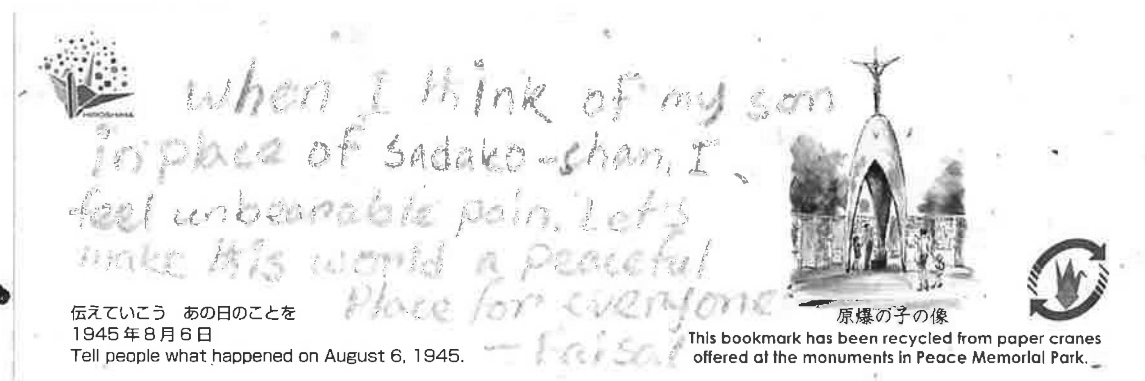 HIROSHIMA
When I think of my son
in place of Sadako-chan, I
feel unbearable pain. Let's
make this world a peaceful
Place for everyone
- Faisal
伝えていこう　あの日のことを
1945年8月6日
Tell people what happened on August 6, 1945.
原爆の子の像
This bookmark has been recycled from paper cranes
offered at the monuments in Peace Memorial Park.